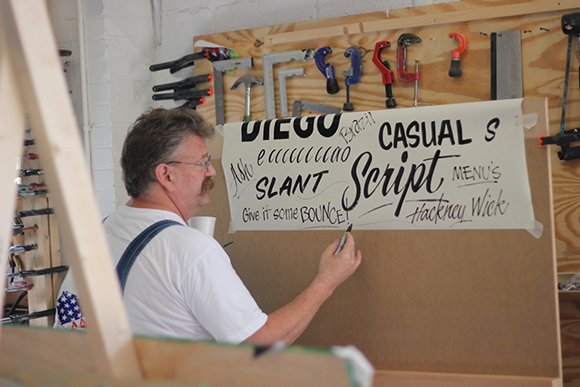 DIEGO Brazil CASUAL S
Ash e ccccccccao
SLANT Script MENU'S
Give it some BOUNCE! Hackney Wick